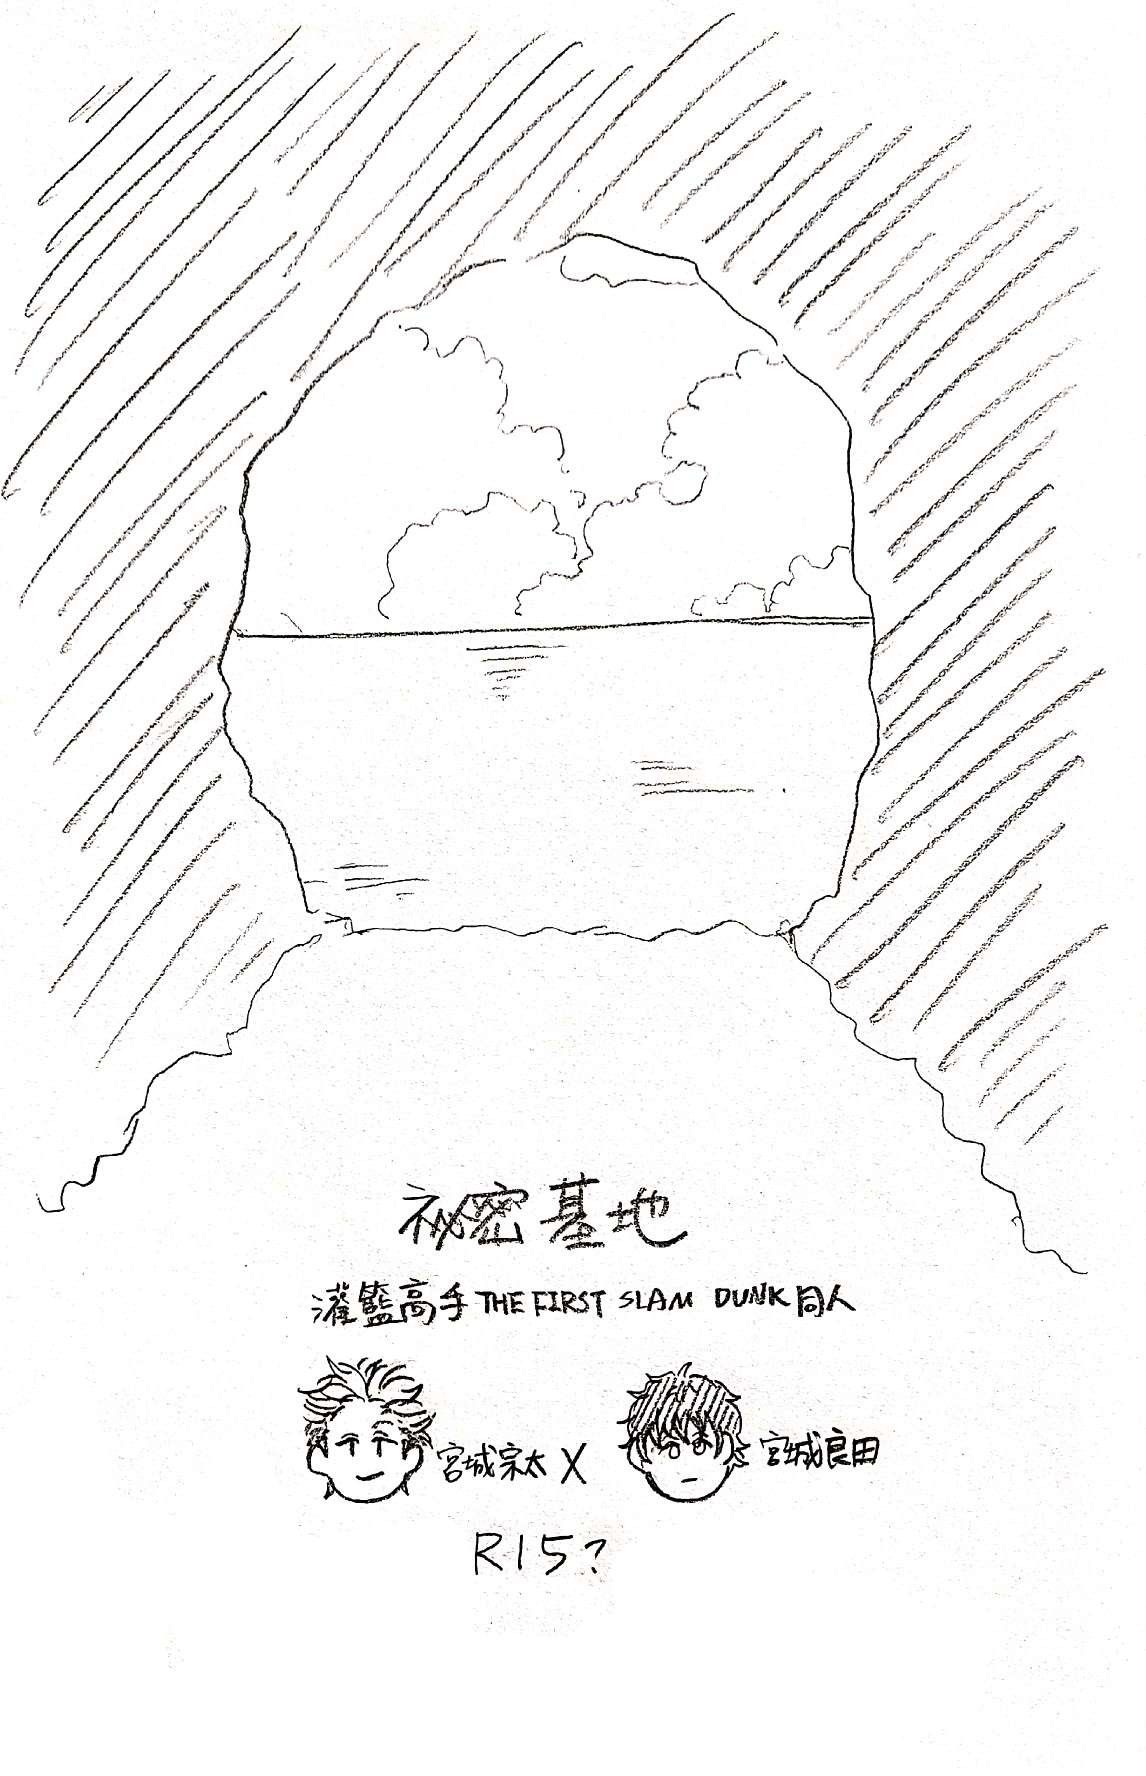 祕密基地
灌籃高手 THE FIRST SLAM DUNK 同人
宮城宗太 X 宮城良田
R15?